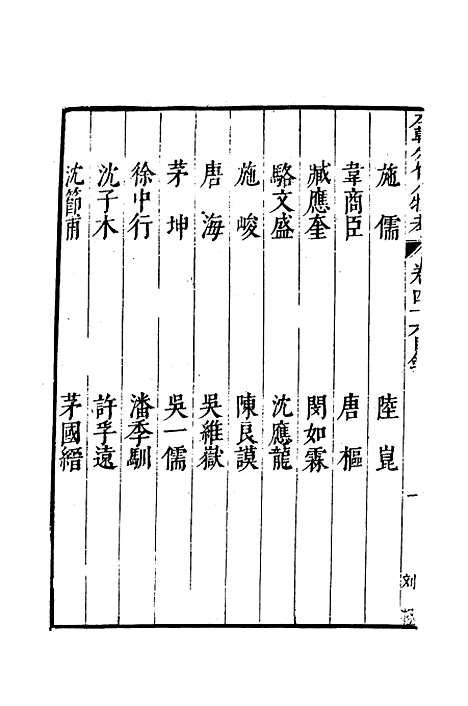 施儒　陸崑
韋商臣　唐樞
臧應奎　閔如霖
駱文盛　沈應龍
施峻　陳良謨
唐海　吳維嶽
茅坤　吳一儒
徐中行　潘季馴
沈子木　許孚遠
沈節甫　茅國縉